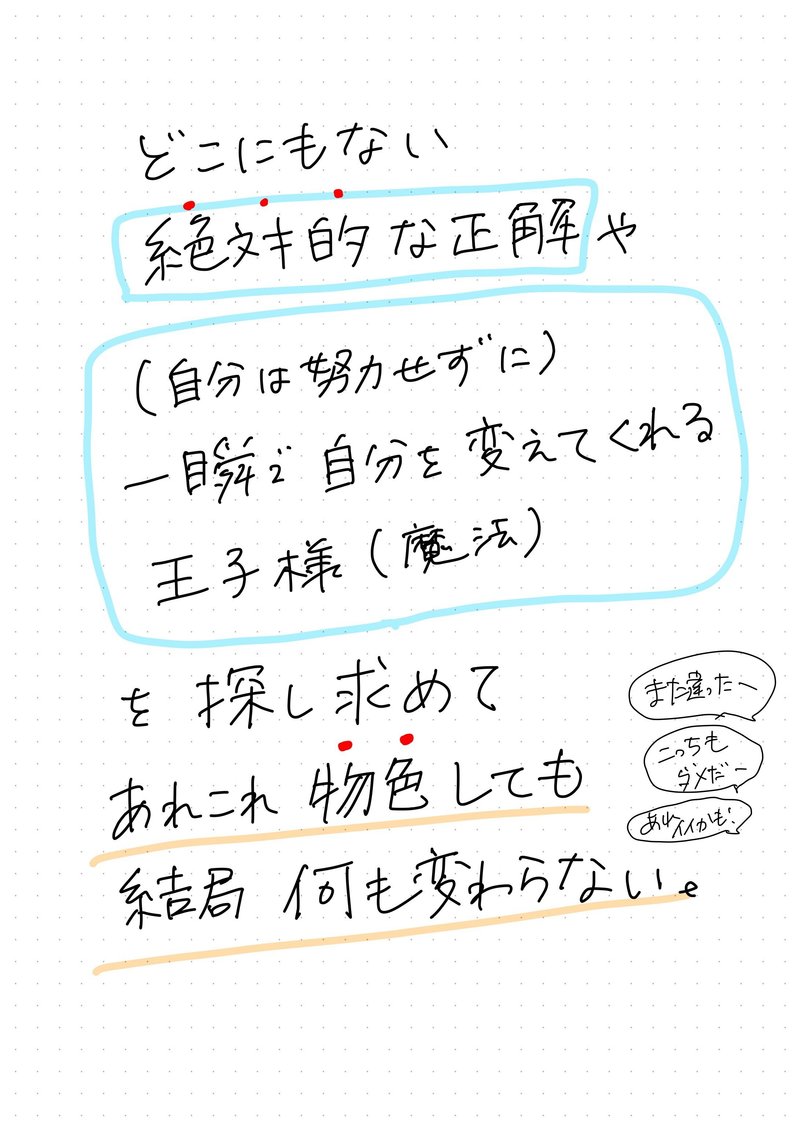 どこにもない
絶対的な正解や
(自分は努力せずに)
一瞬で自分を変えてくれる
王子様(魔法)
を探し求めて
あれこれ物色しても
結局何も変わらない。
また違ったー
こっちも
ダメだー
あれイイかも!